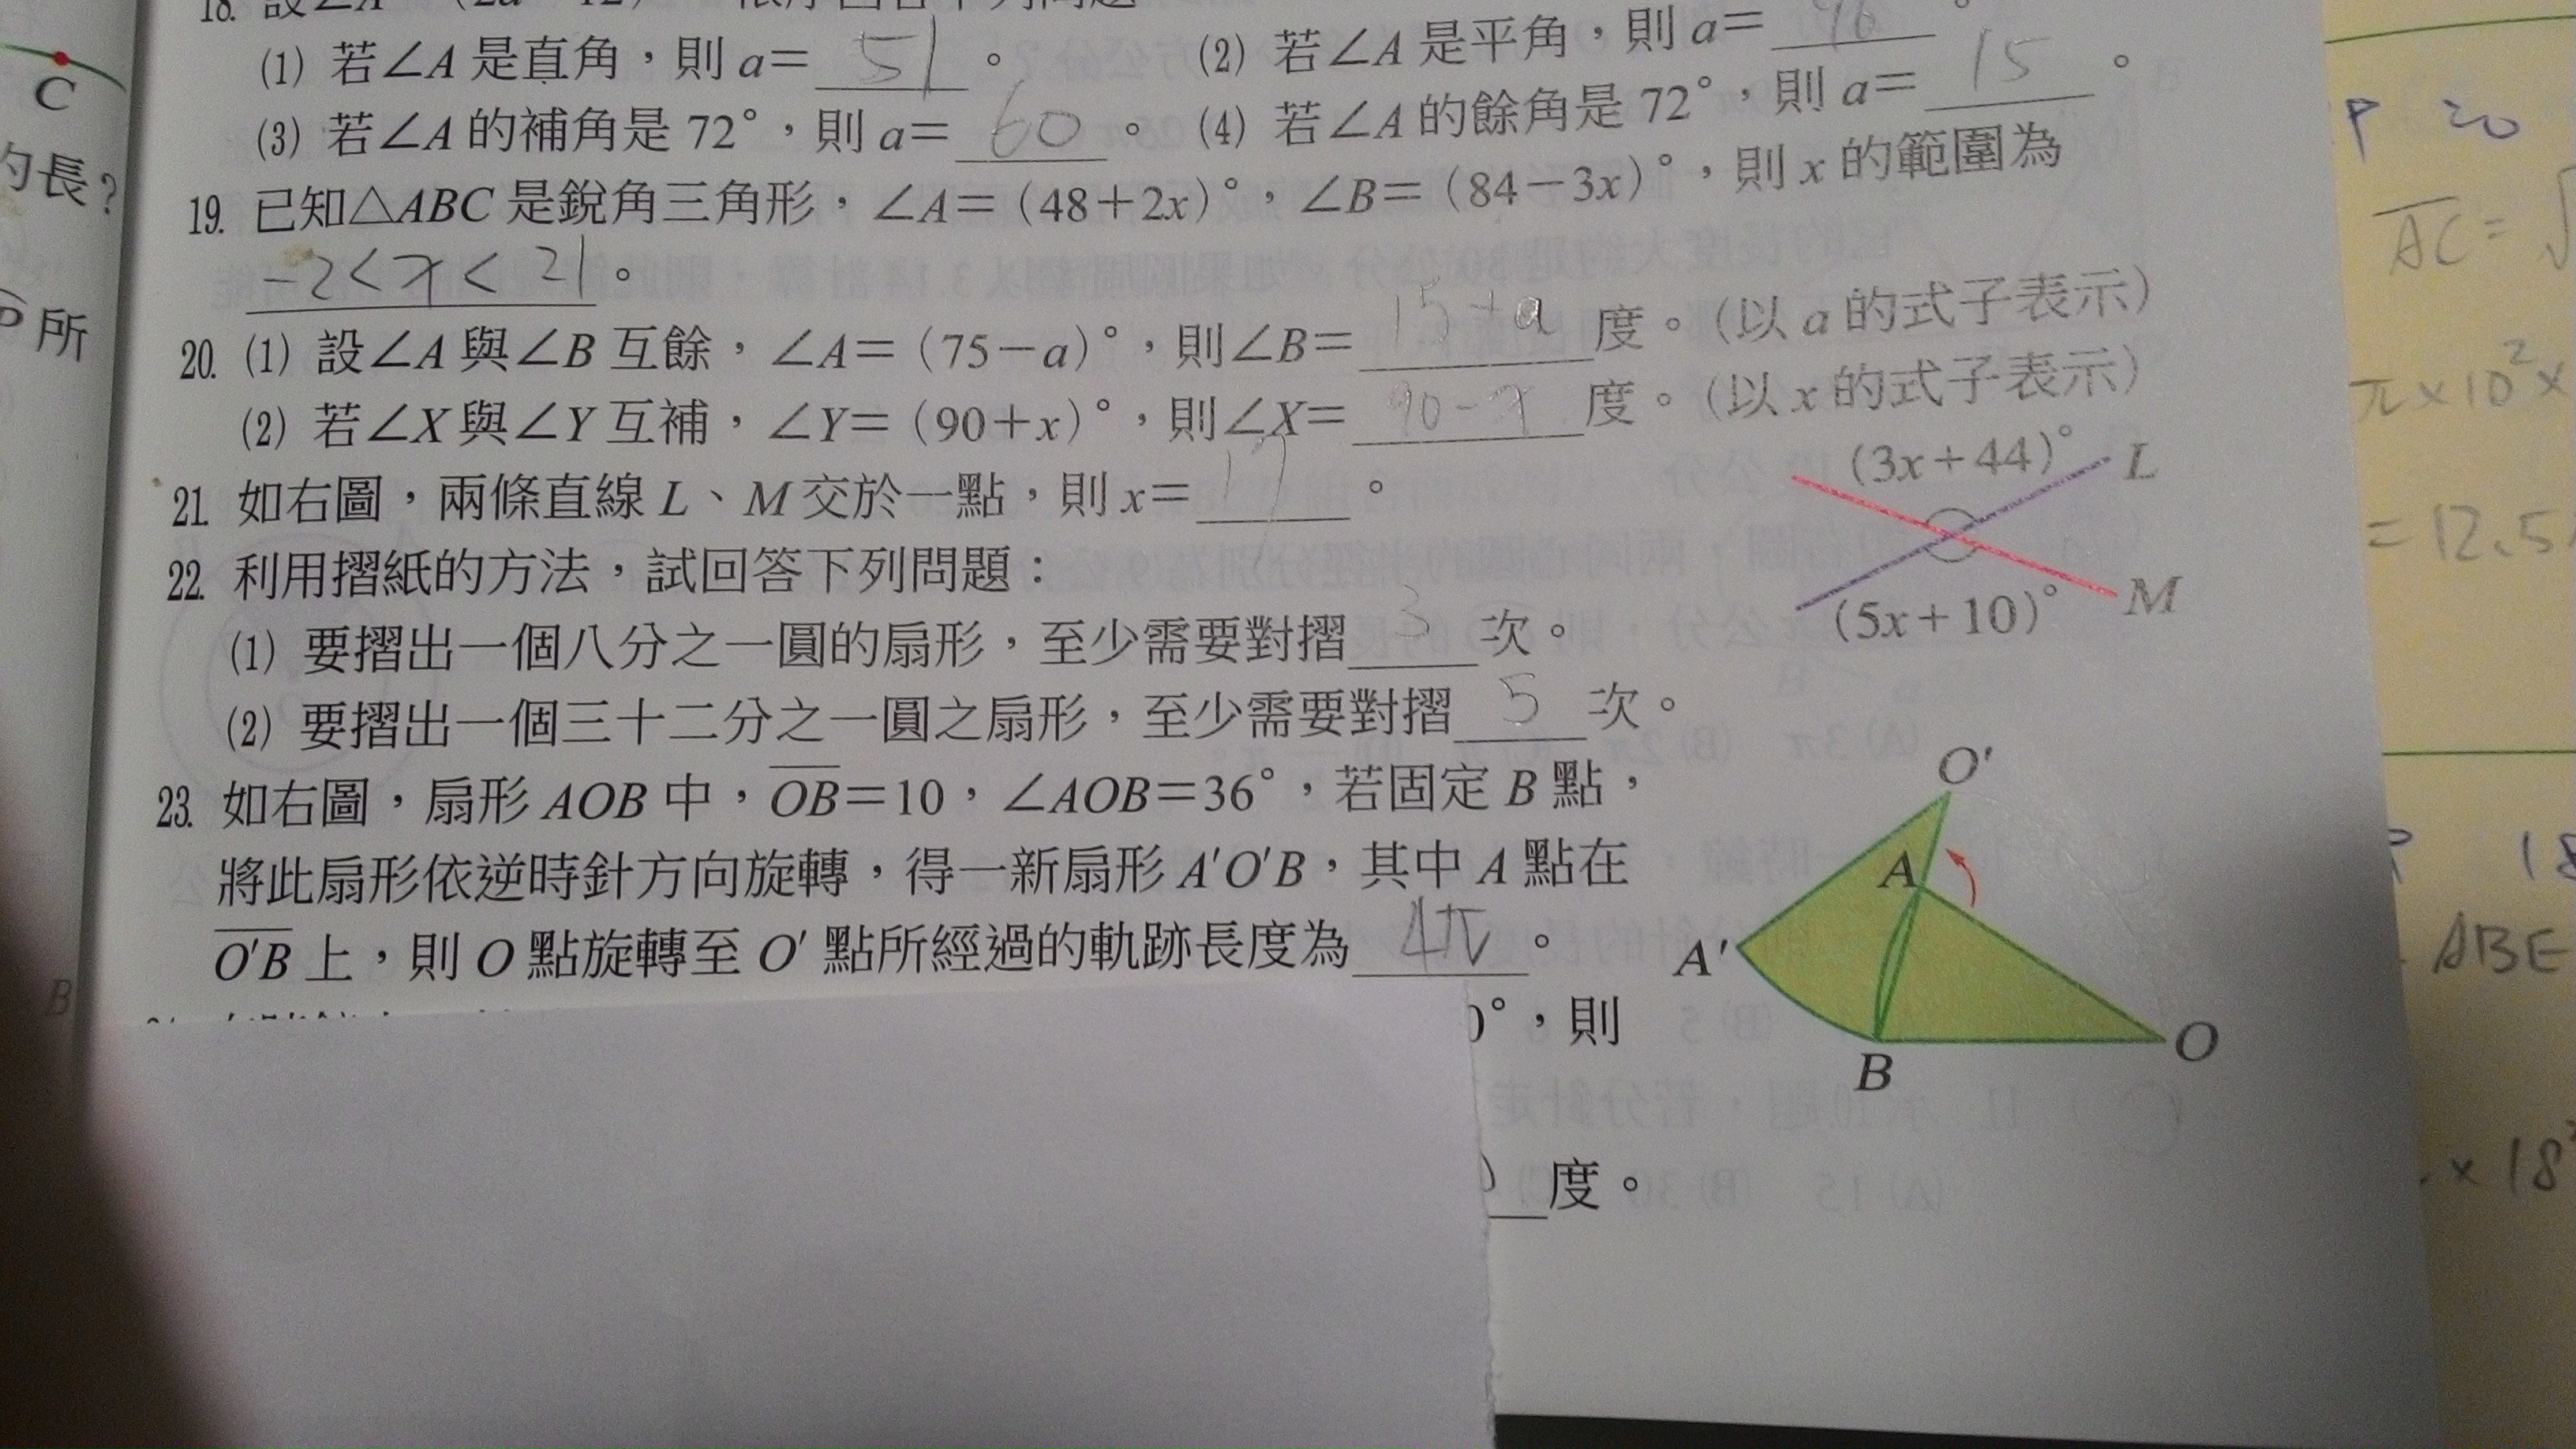 C
的長？
所
B
(1) 若∠A 是直角，則 a= 51 。 (2) 若∠A 是平角，則 a= 96 。
(3) 若∠A 的補角是 72°，則 a= 60 。 (4) 若∠A 的餘角是 72°，則 a= 15 。
19. 已知△ABC 是銳角三角形，∠A=（48+2x）°，∠B=（84-3x）°，則 x 的範圍為
-2<x<21 。
20. (1) 設∠A 與∠B 互餘，∠A=（75-a）°，則∠B= 15+a 度。（以 a 的式子表示）
(2) 若∠X 與∠Y 互補，∠Y=（90+x）°，則∠X= 90-x 度。（以 x 的式子表示）
21. 如右圖，兩條直線 L、M 交於一點，則 x= 17 。
(3x+44)°
L
(5x+10)°
M
22. 利用摺紙的方法，試回答下列問題：
(1) 要摺出一個八分之一圓的扇形，至少需要對摺 3 次。
(2) 要摺出一個三十二分之一圓之扇形，至少需要對摺 5 次。
23. 如右圖，扇形 AOB 中，OB=10，∠AOB=36°，若固定 B 點，
將此扇形依逆時針方向旋轉，得一新扇形 A'O'B，其中 A 點在
O'B 上，則 O 點旋轉至 O' 點所經過的軌跡長度為 4π 。
O'
A
A'
B
O
°，則
度。
AC=√
π×10²×
=12.5
18
ABE
×18²